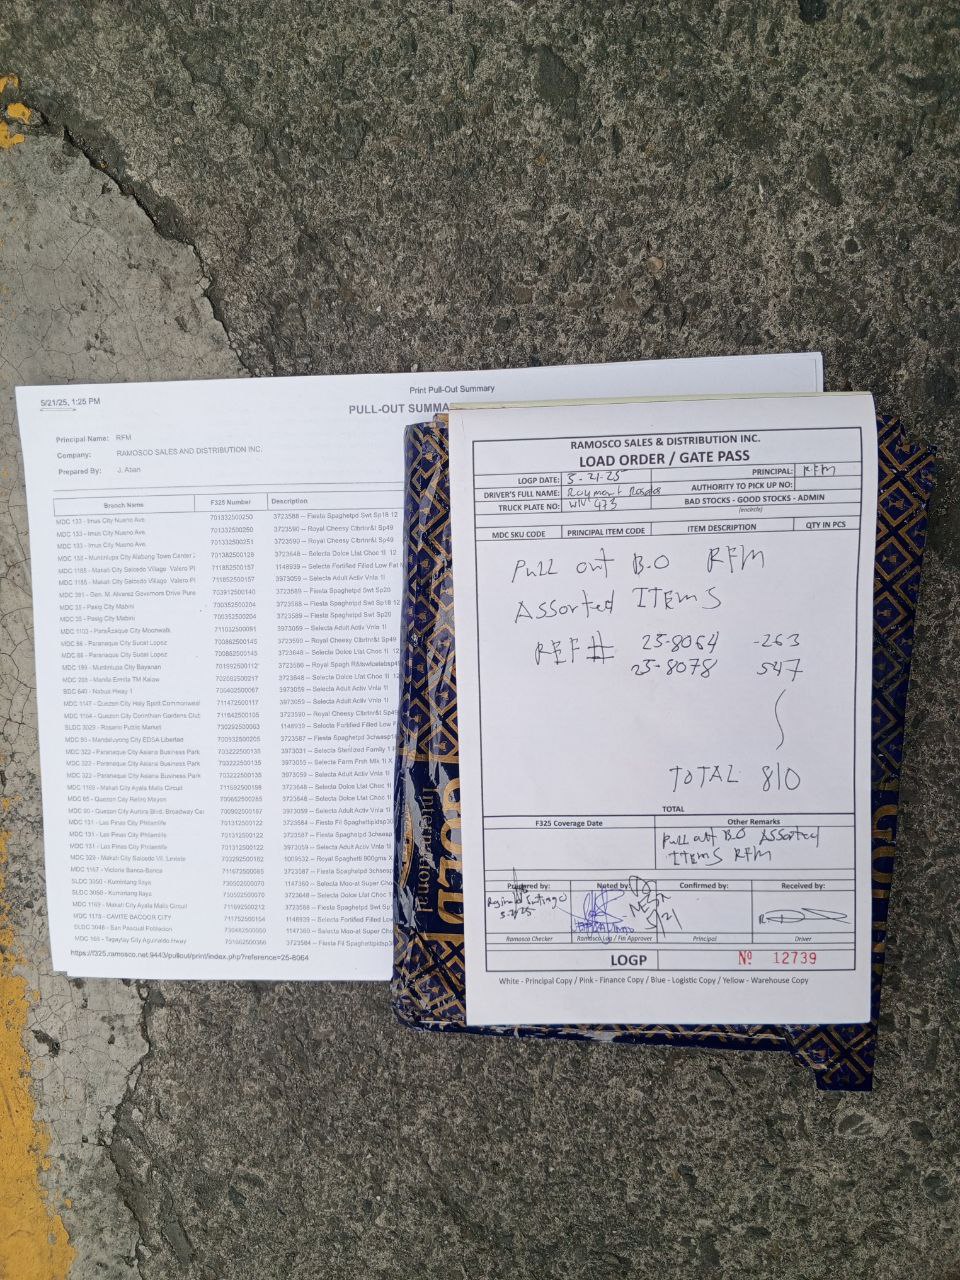 Print Pull-Out Summary
5/21/25, 1:25 PM
PULL-OUT SUMMA
Principal Name: RFM
Company: RAMOSCO SALES AND DISTRIBUTION INC.
Prepared By: J. Aban
Branch Name F325 Number Description
MDC 133 - Imus City Nueno Ave. 701332500250 3723588 -- Fiesta Spaghetpd Swt Sp18 12
MDC 133 - Imus City Nueno Ave. 701332500250 3723590 -- Royal Cheesy Clbrinr&t Sp49
MDC 133 - Imus City Nueno Ave. 701332500251 3723590 -- Royal Cheesy Clbrinr&t Sp49
MDC 138 - Muntinlupa City Alabang Town Center 701382500128 3723648 -- Selecta Dolce Llat Choc 1l 12
MDC 1185 - Makati City Salcedo Village Valero Pl 711852500157 1148939 -- Selecta Fortified Filled Low Fat
MDC 1185 - Makati City Salcedo Village Valero Pl 711852500157 3973059 -- Selecta Adult Activ Vnla 1l
MDC 391 - Gen. M. Alvarez Governors Drive 703912500140 3723589 -- Fiesta Spaghetpd Swt Sp20
MDC 35 - Pasig City Mabini 700352500204 3723588 -- Fiesta Spaghetpd Swt Sp18 12
MDC 35 - Pasig City Mabini 700352500204 3723589 -- Fiesta Spaghetpd Swt Sp20
MDC 1103 - ParaÃ±aque City Moonwalk 711032500091 3973059 -- Selecta Adult Activ Vnla 1l
MDC 86 - Paranaque City Sucat Lopez 700862500145 3723590 -- Royal Cheesy Clbrinr&t Sp49
MDC 86 - Paranaque City Sucat Lopez 700862500145 3723648 -- Selecta Dolce Llat Choc 1l 12
MDC 199 - Muntinlupa City Bayanan 701992500112 3723586 -- Royal Spagh
MDC 208 - Manila Ermita TM Kalaw 702082500217 3723648 -- Selecta Dolce Llat Choc 1l
BDC 640 - Nobus Hway 1 706402500067 3973059 -- Selecta Adult Activ Vnla 1l
MDC 1147 - Quezon City Holy Spirit Commonwealt 711472500117 3973059 -- Selecta Adult Activ Vnla 1l
MDC 1184 - Quezon City Corinthian Gardens 711842500105 3723590 -- Royal Cheesy Clbrinr&t Sp49
SLDC 3029 - Rosario Public Market 730292500063 1148939 -- Selecta Fortified Filled Low F
MDC 93 - Mandaluyong City EDSA Libertad 700932500205 3723587 -- Fiesta Spaghetpd 3chsesp
MDC 322 - Paranaque City Asiana Business Park 703222500135 3973031 -- Selecta Sterilized Family 1
MDC 322 - Paranaque City Asiana Business Park 703222500135 3973055 -- Selecta Farm Frsh Mlk 1l X
MDC 322 - Paranaque City Asiana Business Park 703222500135 3973059 -- Selecta Adult Activ Vnla 1l
MDC 1169 - Makati City Ayala Malls Circuit 711692500198 3723648 -- Selecta Dolce Llat Choc 1l
MDC 65 - Quezon City Retiro Mayon 700652500285 3723648 -- Selecta Dolce Llat Choc 1l
MDC 90 - Quezon City Aurora Blvd. Broadway Cer 700902500197 3973059 -- Selecta Adult Activ Vnla 1l
MDC 131 - Las Pinas City Philamlife 701312500122 3723584 -- Fiesta Fil Spaghettipktsp30
MDC 131 - Las Pinas City Philamlife 701312500122 3723587 -- Fiesta Spaghetpd 3chsesp
MDC 131 - Las Pinas City Philamlife 701312500122 3973059 -- Selecta Adult Activ Vnla 1l
MDC 329 - Makati City Salcedo Vil. Leviste 703292500182 1009532 -- Royal Spaghetti 900gms X
MDC 1167 - Victoria Banca-Banca 711672500085 3723587 -- Fiesta Spaghetpd 3chsesp
SLDC 3050 - Kumintang Ilaya 730502500070 1147360 -- Selecta Moo-at Super Choc
SLDC 3050 - Kumintang Ilaya 730502500070 3723648 -- Selecta Dolce Llat Choc 1l
MDC 1169 - Makati City Ayala Malls Circuit 711692500212 3723588 -- Fiesta Spaghetpd Swt Sp1
MDC 1175 - CAVITE BACOOR CITY 711752500154 1148939 -- Selecta Fortified Filled Low
SLDC 3048 - San Pasqual Poblacion 730482500050 1147360 -- Selecta Moo-at Super Cho
MDC 166 - Tagaytay City Aguinaldo Hway 701662500366 3723584 -- Fiesta Fil Spaghettipktsp30
https://f325.ramosco.net:9443/pullout/print/index.php?reference=25-8064
International
GOLD
RAMOSCO SALES & DISTRIBUTION INC.
LOAD ORDER / GATE PASS
LOGP DATE: 5-21-25 PRINCIPAL: RFM
DRIVER'S FULL NAME: Raymont Rosales AUTHORITY TO PICK UP NO:
TRUCK PLATE NO: WIV 473 BAD STOCKS - GOOD STOCKS - ADMIN
(encircle)
MDC SKU CODE PRINCIPAL ITEM CODE ITEM DESCRIPTION QTY IN PCS
Pull out B.O RFM
Assorted ITEMS
REF# 25-8064 -263
25-8078 547
TOTAL 810
TOTAL
F325 Coverage Date Other Remarks
Pull out B.O Assorted
ITEMS RFM
Prepared by: Noted by: Confirmed by: Received by:
5-21-25 5/21
Ramosco Checker Ramosco Log / Fin Approver Principal Driver
LOGP Nº 12739
White - Principal Copy / Pink - Finance Copy / Blue - Logistic Copy / Yellow - Warehouse Copy